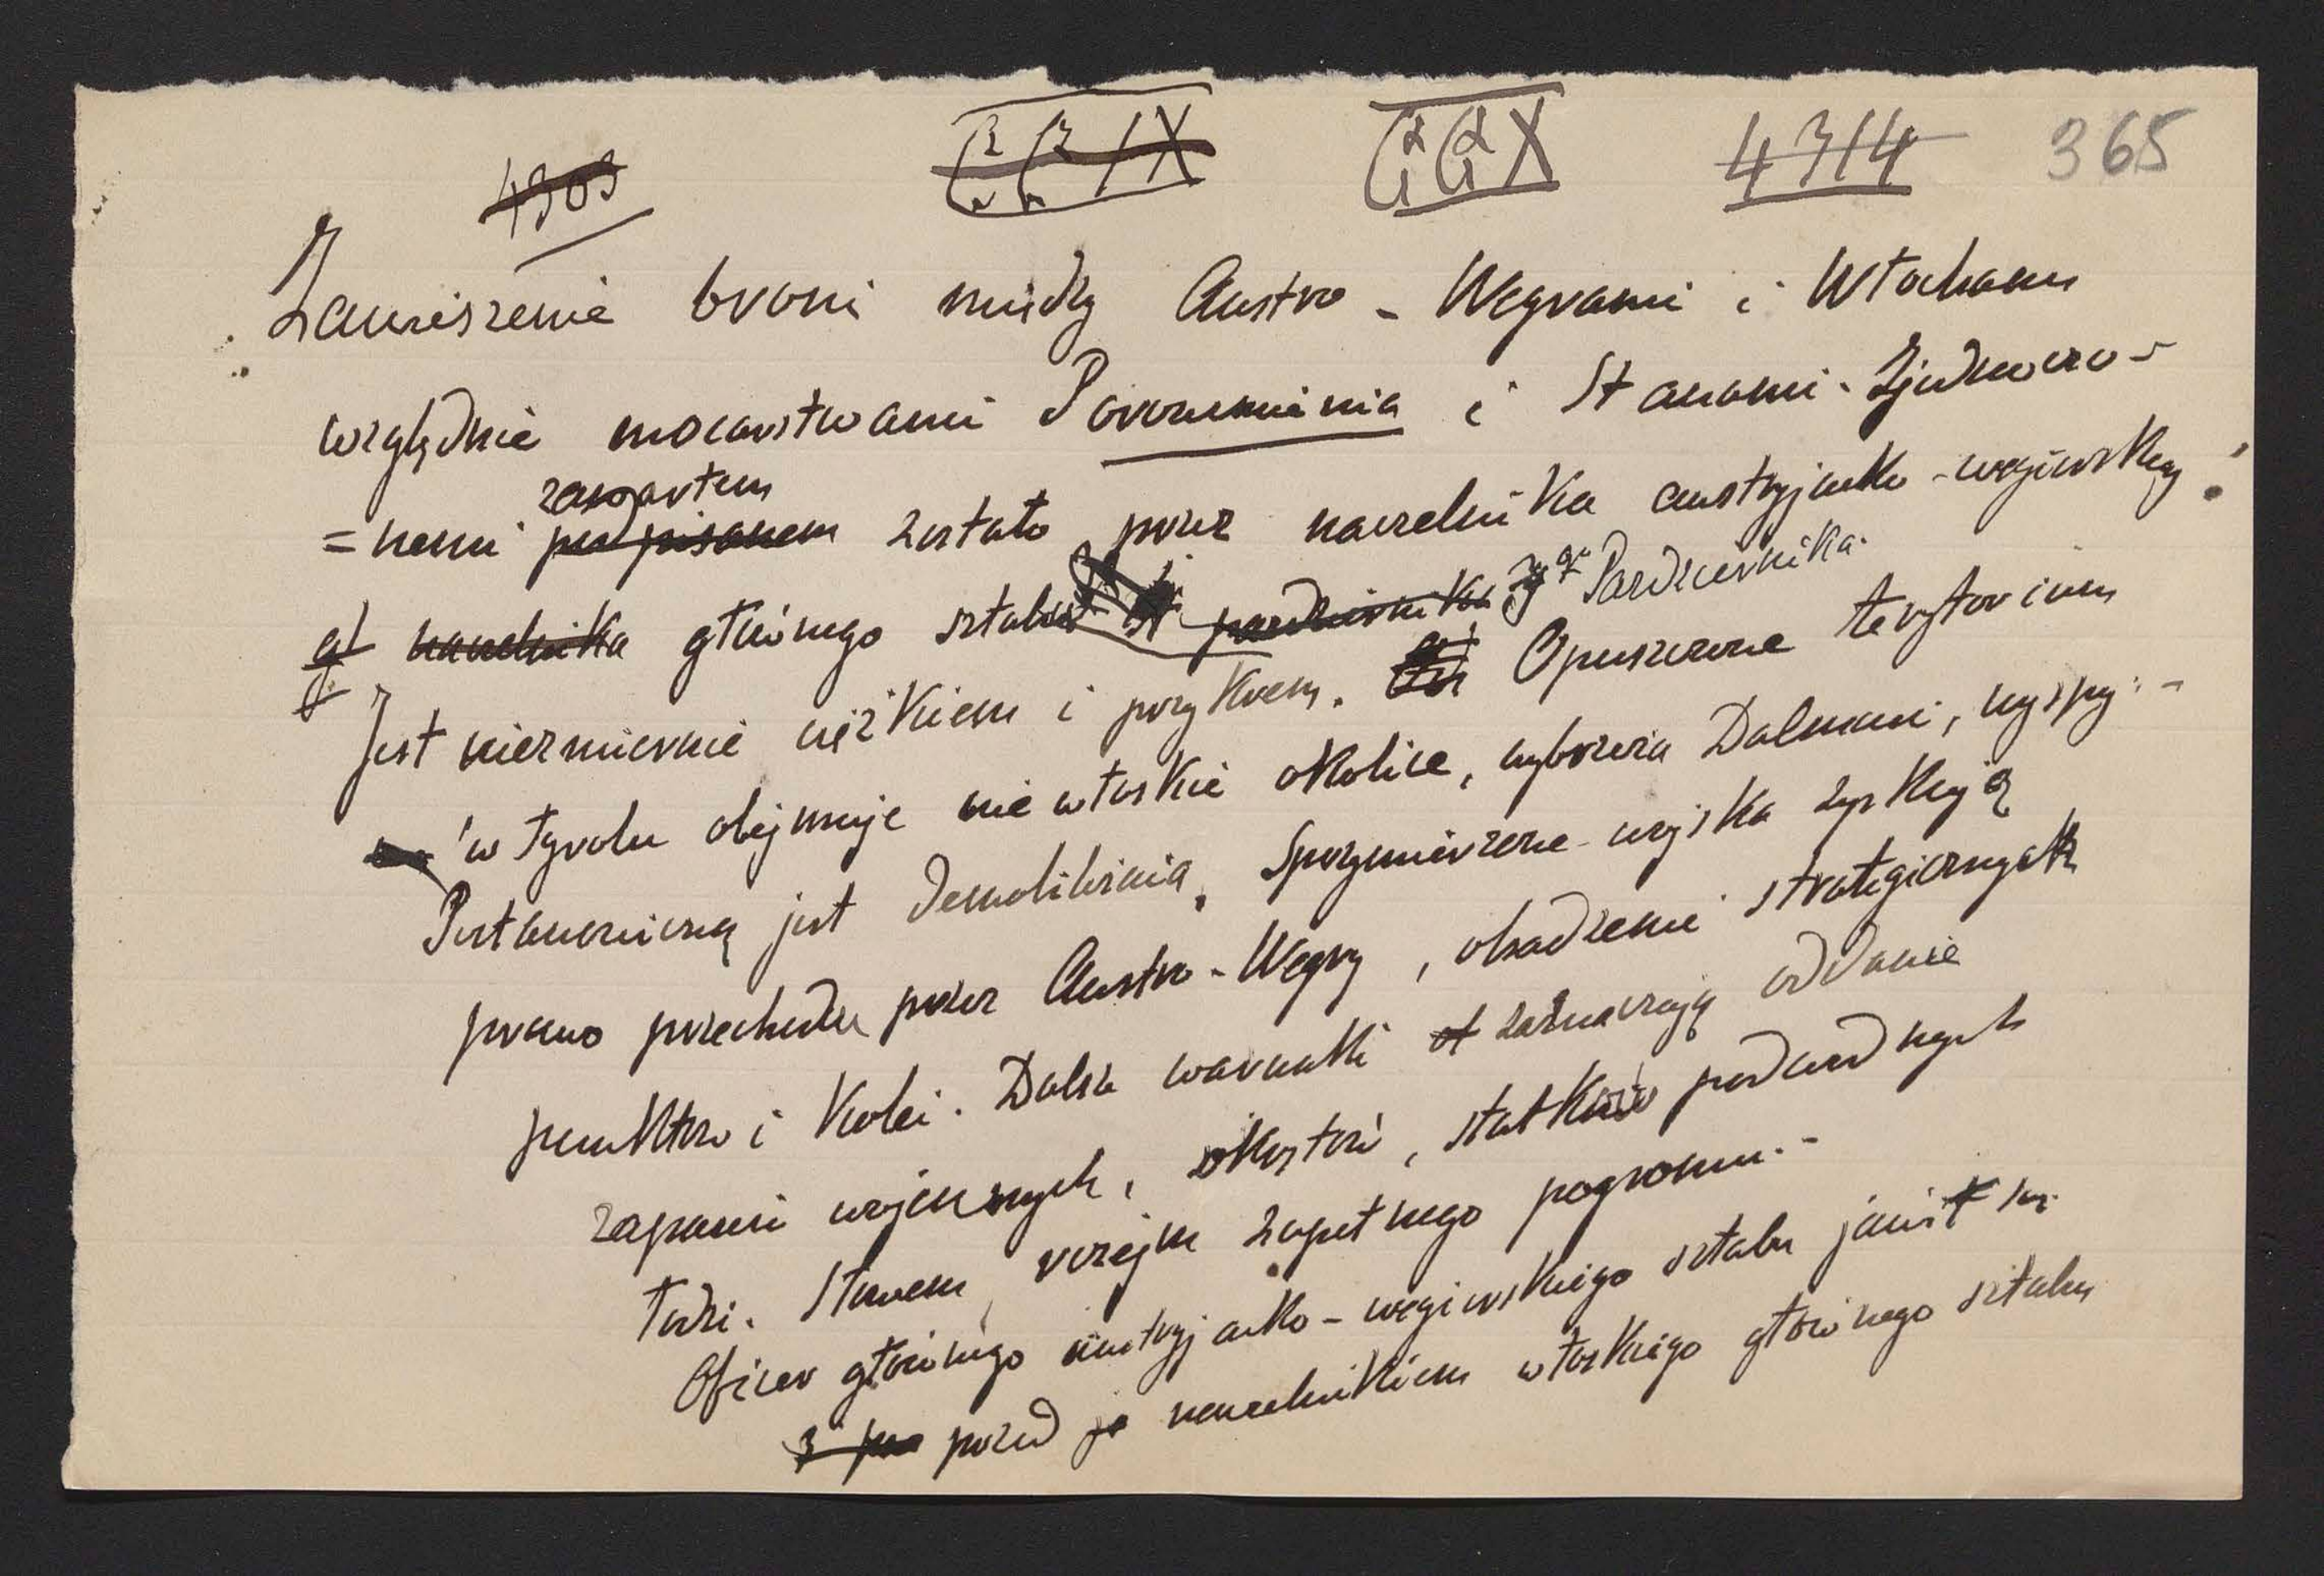 4303 CCIX CCX 4314 365
Zawieszenie broni między Austro-Węgrami i Włochami
względnie mocarstwami Porozumienia i Stanami-Zjednoczo-
zawartem
=nemi podpisanem zostało przez naczelnika austryjacko-węgierskieg
gł naczelnika głównego sztabu październik 3go Października.
Jest niezmiernie ciężkiem i przykrem. Opuszczone terytorium
w Tyrolu obejmuje nie włoskie okolice, wybrzeża Dalmacii, wyspy.-
Postanowioną jest Demobilizacia, Sprzymierzone wojska zyskują
prawo przechodu przez Austro-Węgry, obsadzenie strategicznych
punktów i Kolei. Dalsze warunki zaznaczają oddanie
zapasów wojennych, okrętów, statków podwodnych
łodzi. Słowem, rozejm zupełnego pogromu.-
Oficer głównego austryjacko-węgierskiego sztabu jawił się
przed naczelnikiem włoskiego głównego sztabu